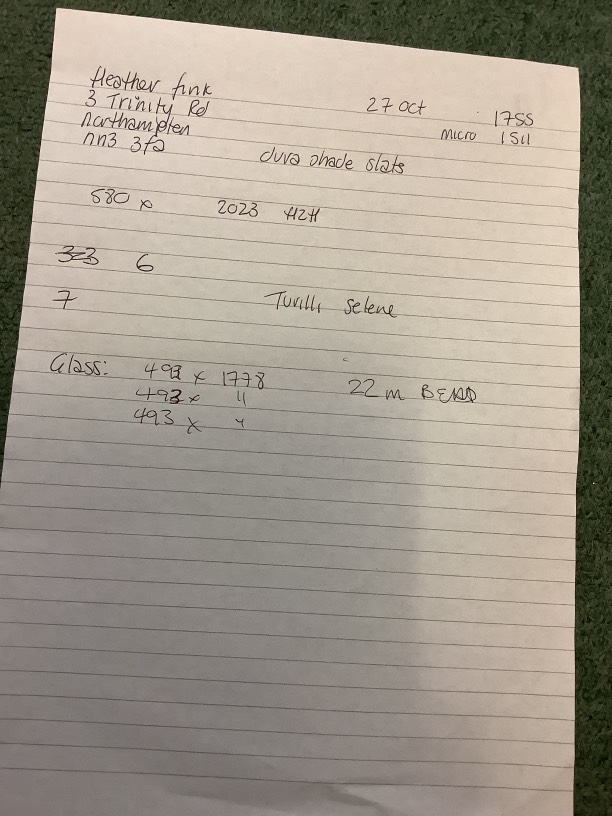 Heather fink
3 Trinity Rd
27 Oct
17SS
northampten
micro 1511
nn3 3fa
dura shade slats
580 x 2023 HZH
323 6
7
Turilli Selene
Glass: 493 x 1778
22 m BEAD
493 x "
493 x "